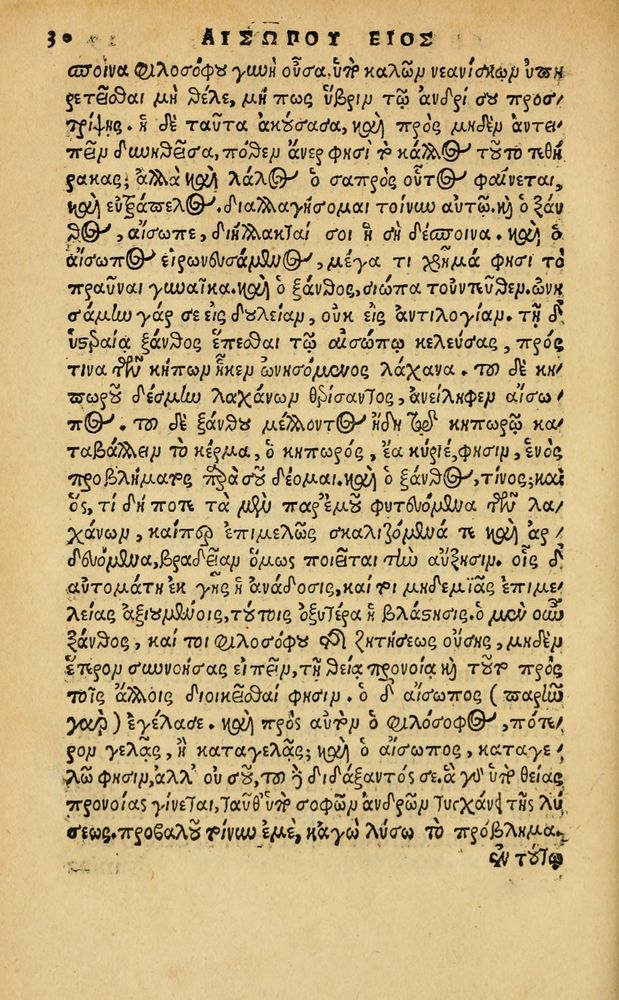 30 ΑΙΣΩΠΟΥ ΕΙΟΣ
σποινα φιλοσόφου γυνὴ οὖσα, ὑπὸ καλῶν νεανίσκων ὑπη
ρετεῖσθαι μὴ θέλε, μή πως ὕβριν τῷ ἀνδρί σου προσ
τρίψῃς. ἡ δὲ ταῦτα ἀκούσασα, καὶ πρὸς μηδὲν ἀντει
πεῖν δυνηθεῖσα, πόθεν ἄνερ φησὶ τὸ κάλλος τοῦτο τεθή
ρακας; ἀλλὰ καὶ λάλος ὁ σαπρὸς οὗτος φαίνεται,
καὶ εὐξάπελος. διαλλαγήσομαι τοίνυν αὐτῷ. καὶ ὁ ξάν
θος, αἴσωπε, διήλλακταί σοι ἡ σὴ δέσποινα. καὶ ὁ
αἴσωπος εἰρωνευσάμενος, μέγα τι χρῆμά φησι τὸ
πραῦναι γυναῖκα. καὶ ὁ ξάνθος, σιώπα τοὐντεῦθεν. ὠνη
σάμην γάρ σε εἰς δουλείαν, οὐκ εἰς ἀντιλογίαν. τῇ δ
ὑστεραίᾳ ξάνθος ἕπεσθαι τῷ αἰσώπῳ κελεύσας, πρός
τινα τῶν κήπων ἧκεν ὠνησόμενος λάχανα. τοῦ δὲ κη
πωροῦ δέσμην λαχάνων θρίσαντος, ἀνείληφεν αἴσω
πος. τοῦ δὲ ξάνθου μέλλοντος ἤδη τῷ κηπωρῷ κα
ταβάλλειν τὸ κέρμα, ὁ κηπωρός, ἔα κύριέ, φησιν, ἑνὸς
προβλήματος παρὰ σοῦ δέομαι. καὶ ὁ ξάνθος, τίνος; καὶ
ὅς, τί δή ποτε τὰ μὲν παρ' ἐμοῦ φυτευόμενα τῶν λα
χάνων, καίπερ ἐπιμελῶς σκαλιζόμενά τε καὶ ἀρ
δευόμενα, βραδεῖαν ὅμως ποιεῖται τὴν αὔξησιν. οἷς δ
αὐτομάτη ἐκ γῆς ἡ ἀνάδοσις, καί τοι μηδεμιᾶς ἐπιμε
λείας ἀξιουμένοις, τούτοις ὀξυτέρα ἡ βλάστησις. ὁ μὲν οὖν
ξάνθος, καί τοι φιλοσόφου τῆς ζητήσεως οὔσης, μηδὲν
ἕτερον συννοήσας εἰπεῖν, τῇ θείᾳ προνοίᾳ καὶ τοῦτο πρὸς
τοῖς ἄλλοις διοικεῖσθαί φησιν. ὁ δ αἴσωπος (παρῆν
γὰρ) ἐγέλασε. καὶ πρὸς αὐτὸν ὁ φιλόσοφος, πότε
ρον γελᾷς, ἢ καταγελᾷς; καὶ ὁ αἴσωπος, καταγε
λῶ φησιν, ἀλλ' οὐ σοῦ, τοῦ δὲ διδάξαντός σε. ἃ γὰρ ὑπὸ θείας
προνοίας γίνεται, ταῦθ' ὑπὸ σοφῶν ἀνδρῶν τυγχάνει τῆς λύ
σεως. προβαλοῦ τοίνυν ἐμέ, κἀγὼ λύσω τὸ πρόβλημα.
ἐν τούτῳ